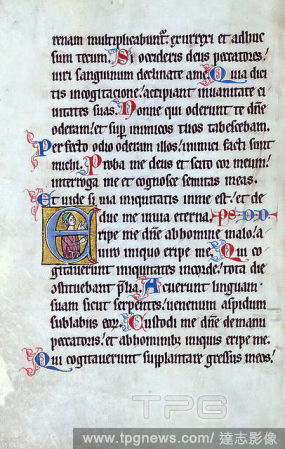 renam multiplicabunt᷑. exurrexi et adhuc
sum tecum. Si occideris deus peccatores:
uiri sanguinum declinate a me. Quia dici
tis in cogitatione: accipiant in uanitate ci
uitates suas. Nonne qui oderunt te dn̄e
oderam: et sup̄ inimicos tuos tabescebam.
Perfecto odio oderam illos: inimici facti sunt
michi. Proba me deus et scito cor meum:
interroga me et cognosce semitas meas.
Et uide si uia iniquitatis in me est: et de
duc me in uia eterna. PS. DD.
Eripe me dn̄e ab homine malo: a
uiro iniquo eripe me. Qui co
gitauerunt iniquitates in corde: tota die
constituebant p̄lia. Acuerunt linguam
suam sicut serpentes: uenenum aspidum
sub labiis eor᷑. Custodi me dn̄e de manu
peccatoris: et ab hominib᷒ iniquis eripe me.
Qui cogitauerunt supplantare gressus meos:
TPG
www.tpgnews.com/達志影像